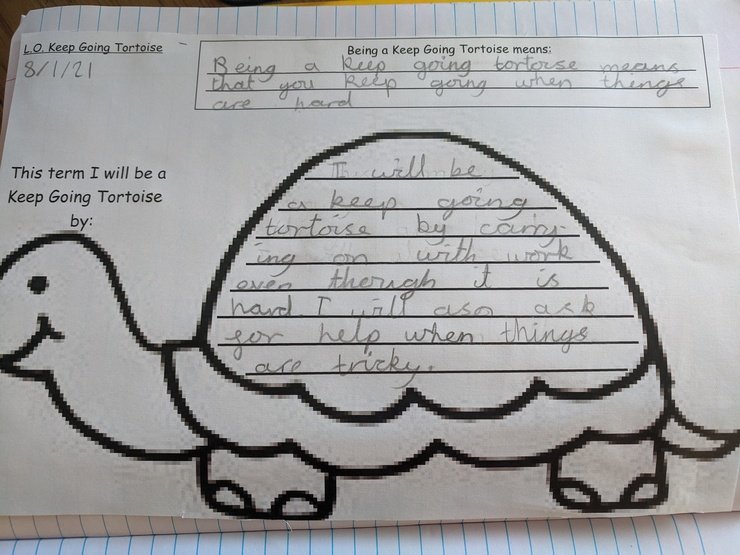 L.O. Keep Going Tortoise
8/1/21
Being a Keep Going Tortoise means:
Being a keep going tortoise means
that you keep going when things
are hard
This term I will be a
Keep Going Tortoise
by:
I will be
a keep going
tortoise by carry-
ing on with work
even therugh it is
hard I will ason ask
for help when things
are tricky.